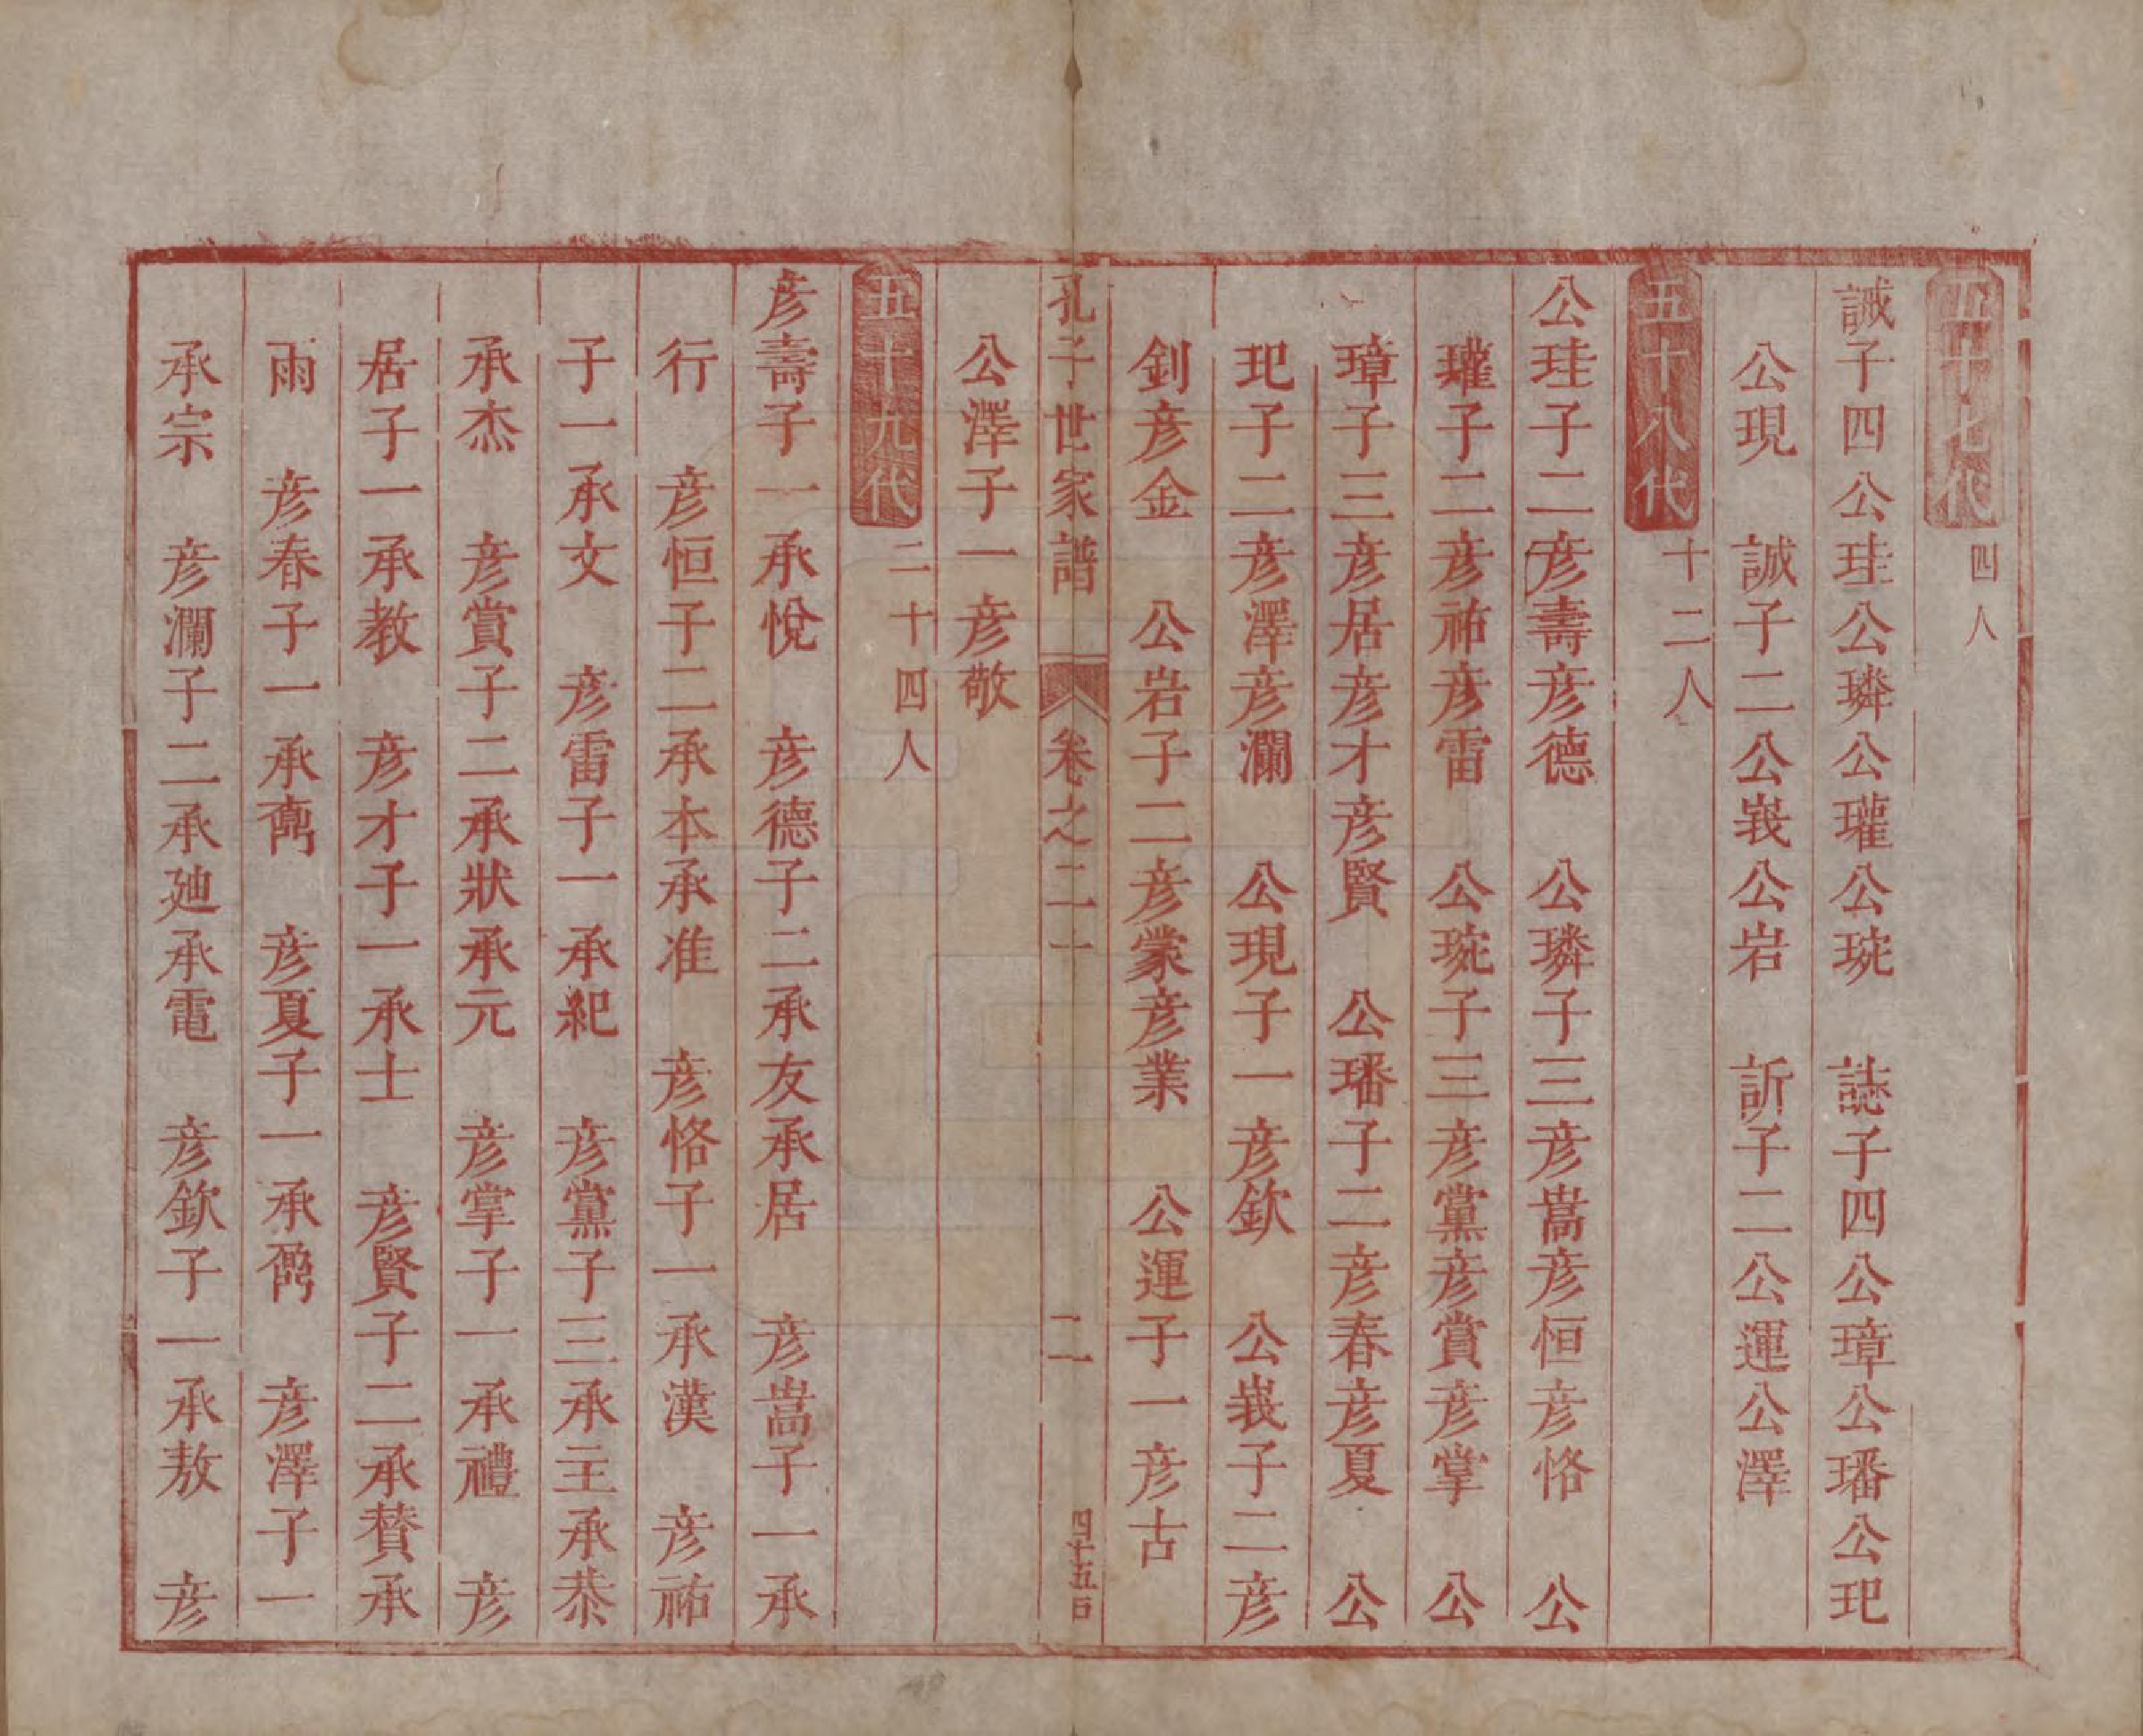 五十七代 四人
誠子四公珪公璘公瓘公琬 誌子四公璋公璠公玘
公現 誠子二公峩公岩 訢子二公運公澤
五十八代 十二人
公珪子二彦壽彦德 公璘子三彦嵩彦恒彦恪 公
瓘子二彦祐彦雷 公琬子三彦黨彦賞彦掌 公
璋子三彦居彦才彦賢 公璠子二彦春彦夏 公
玘子二彦澤彦瀾 公現子一彦欽 公峩子二彦
釗彦金 公岩子二彦蒙彦業 公運子一彦古
公澤子一彦敬
孔子世家譜 卷之二十 二 四十五百
五十九代 二十四人
彦壽子一承悅 彦德子二承友承居 彦嵩子一承
行 彦恒子二承本承准 彦恪子一承漢 彦祐
子一承文 彦雷子一承紀 彦黨子三承主承恭
承杰 彦賞子二承狀承元 彦掌子一承禮 彦
居子一承教 彦才子一承士 彦賢子二承賛承
雨 彦春子一承 彦夏子一承 彦澤子一
承宗 彦瀾子二承廸承電 彦欽子一承敖 彦